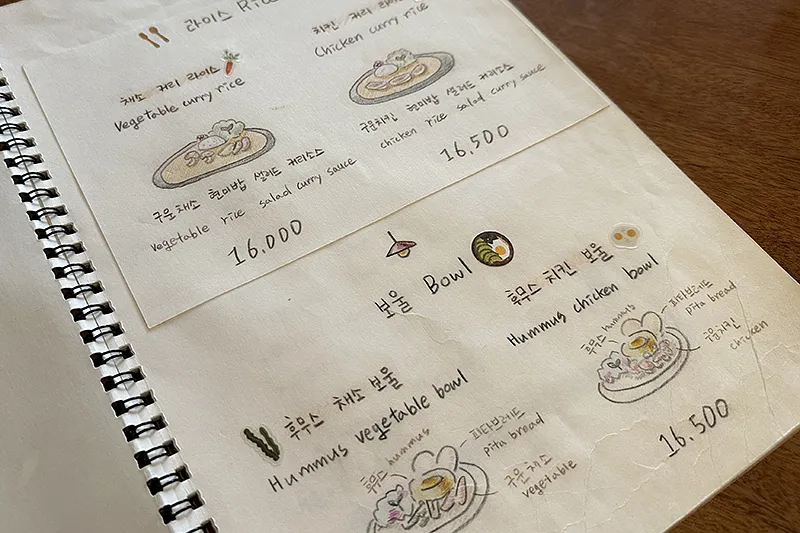 라이스 Rice
채소 커리 라이스
Vegetable curry rice
구운채소 현미밥 샐러드 커리소스
vegetable rice salad curry sauce
16,000
치킨 커리 라이스
Chicken curry rice
구운치킨 현미밥 샐러드 커리소스
chicken rice salad curry sauce
16,500
보울 Bowl
후무스 채소 보울
Hummus vegetable bowl
후무스 hummus
피타브레드
pita bread
구운채소
vegetable
후무스 치킨 보울
Hummus chicken bowl
후무스 hummus
피타브레드
pita bread
구운치킨
chicken
16,500